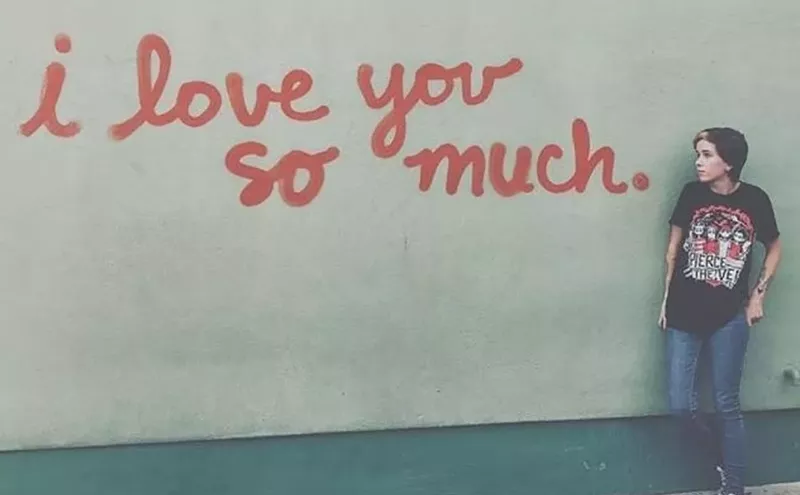 i love you
so much.
PIERCE
THE VEI